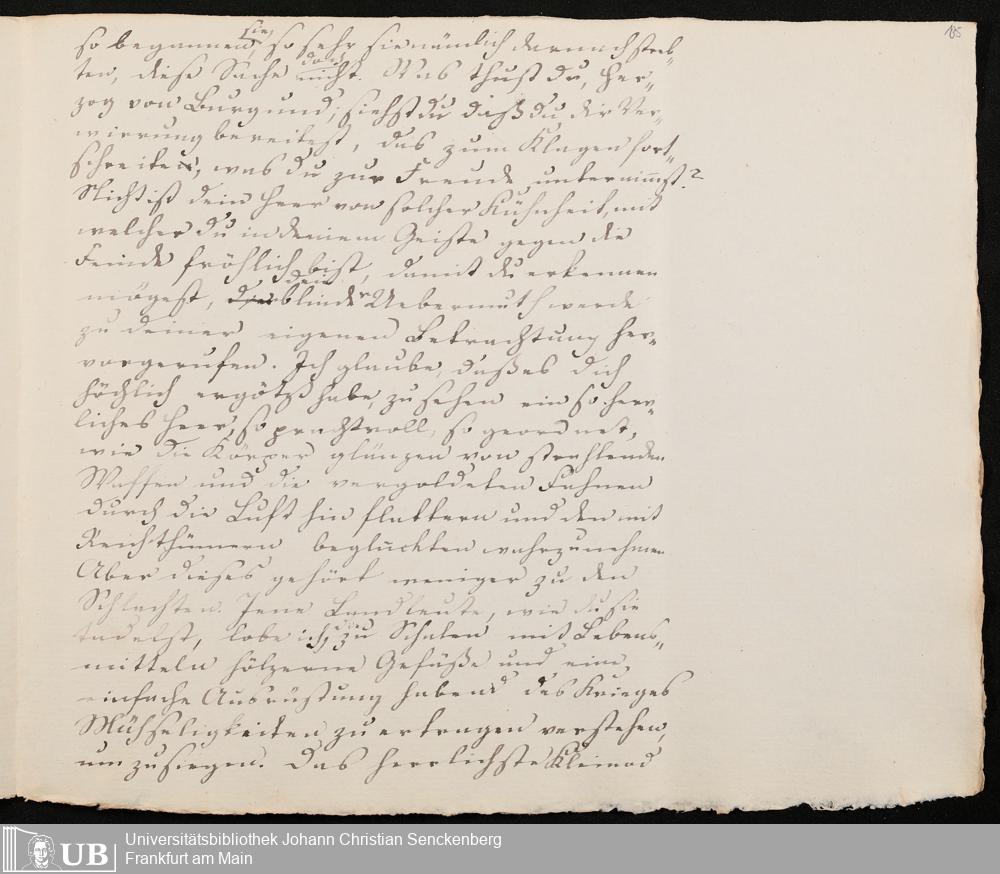 185
so begannen sie, so sehr sie nämlich darnach streb-
ten, diese Sache nicht. Was thust du, Her-
zog von Burgund, siehst du daß du dir Ver-
wirrung bereitest, das zum Klagen fort-
schreiten, was du zur Freude unternimmst?
Nicht ist dein Heer von solcher Kühnheit, mit
welcher du in deinem Geiste gegen die
Feinde fröhlich bist, damit du erkennen
mögest, dein blinder Uebermuth werde
zu deiner eigenen Betrachtung her-
vorgerufen. Ich glaube, daß es dich
höchlich ergötzt habe, zu sehen ein so herr-
liches Heer, so prachtvoll, so geordnet,
wie die Körper glänzen von strahlenden
Waffen und die vergoldeten Fahnen
durch die Luft hin flattern und den mit
Reichthümern beglückten wahrzunehmen.
Aber dieses gehört weniger zu den
Schlachten. Jene Landleute, wie du sie
tadelst, lobe ich, die zu Schalen mit Lebens-
mitteln hölzerne Gefäße und eine
einfache Ausrüstung habend des Krieges
Mühseligkeiten zu ertragen verstehen,
um zu siegen. Das herrlichste Kleinod
UB
Universitätsbibliothek Johann Christian Senckenberg
Frankfurt am Main